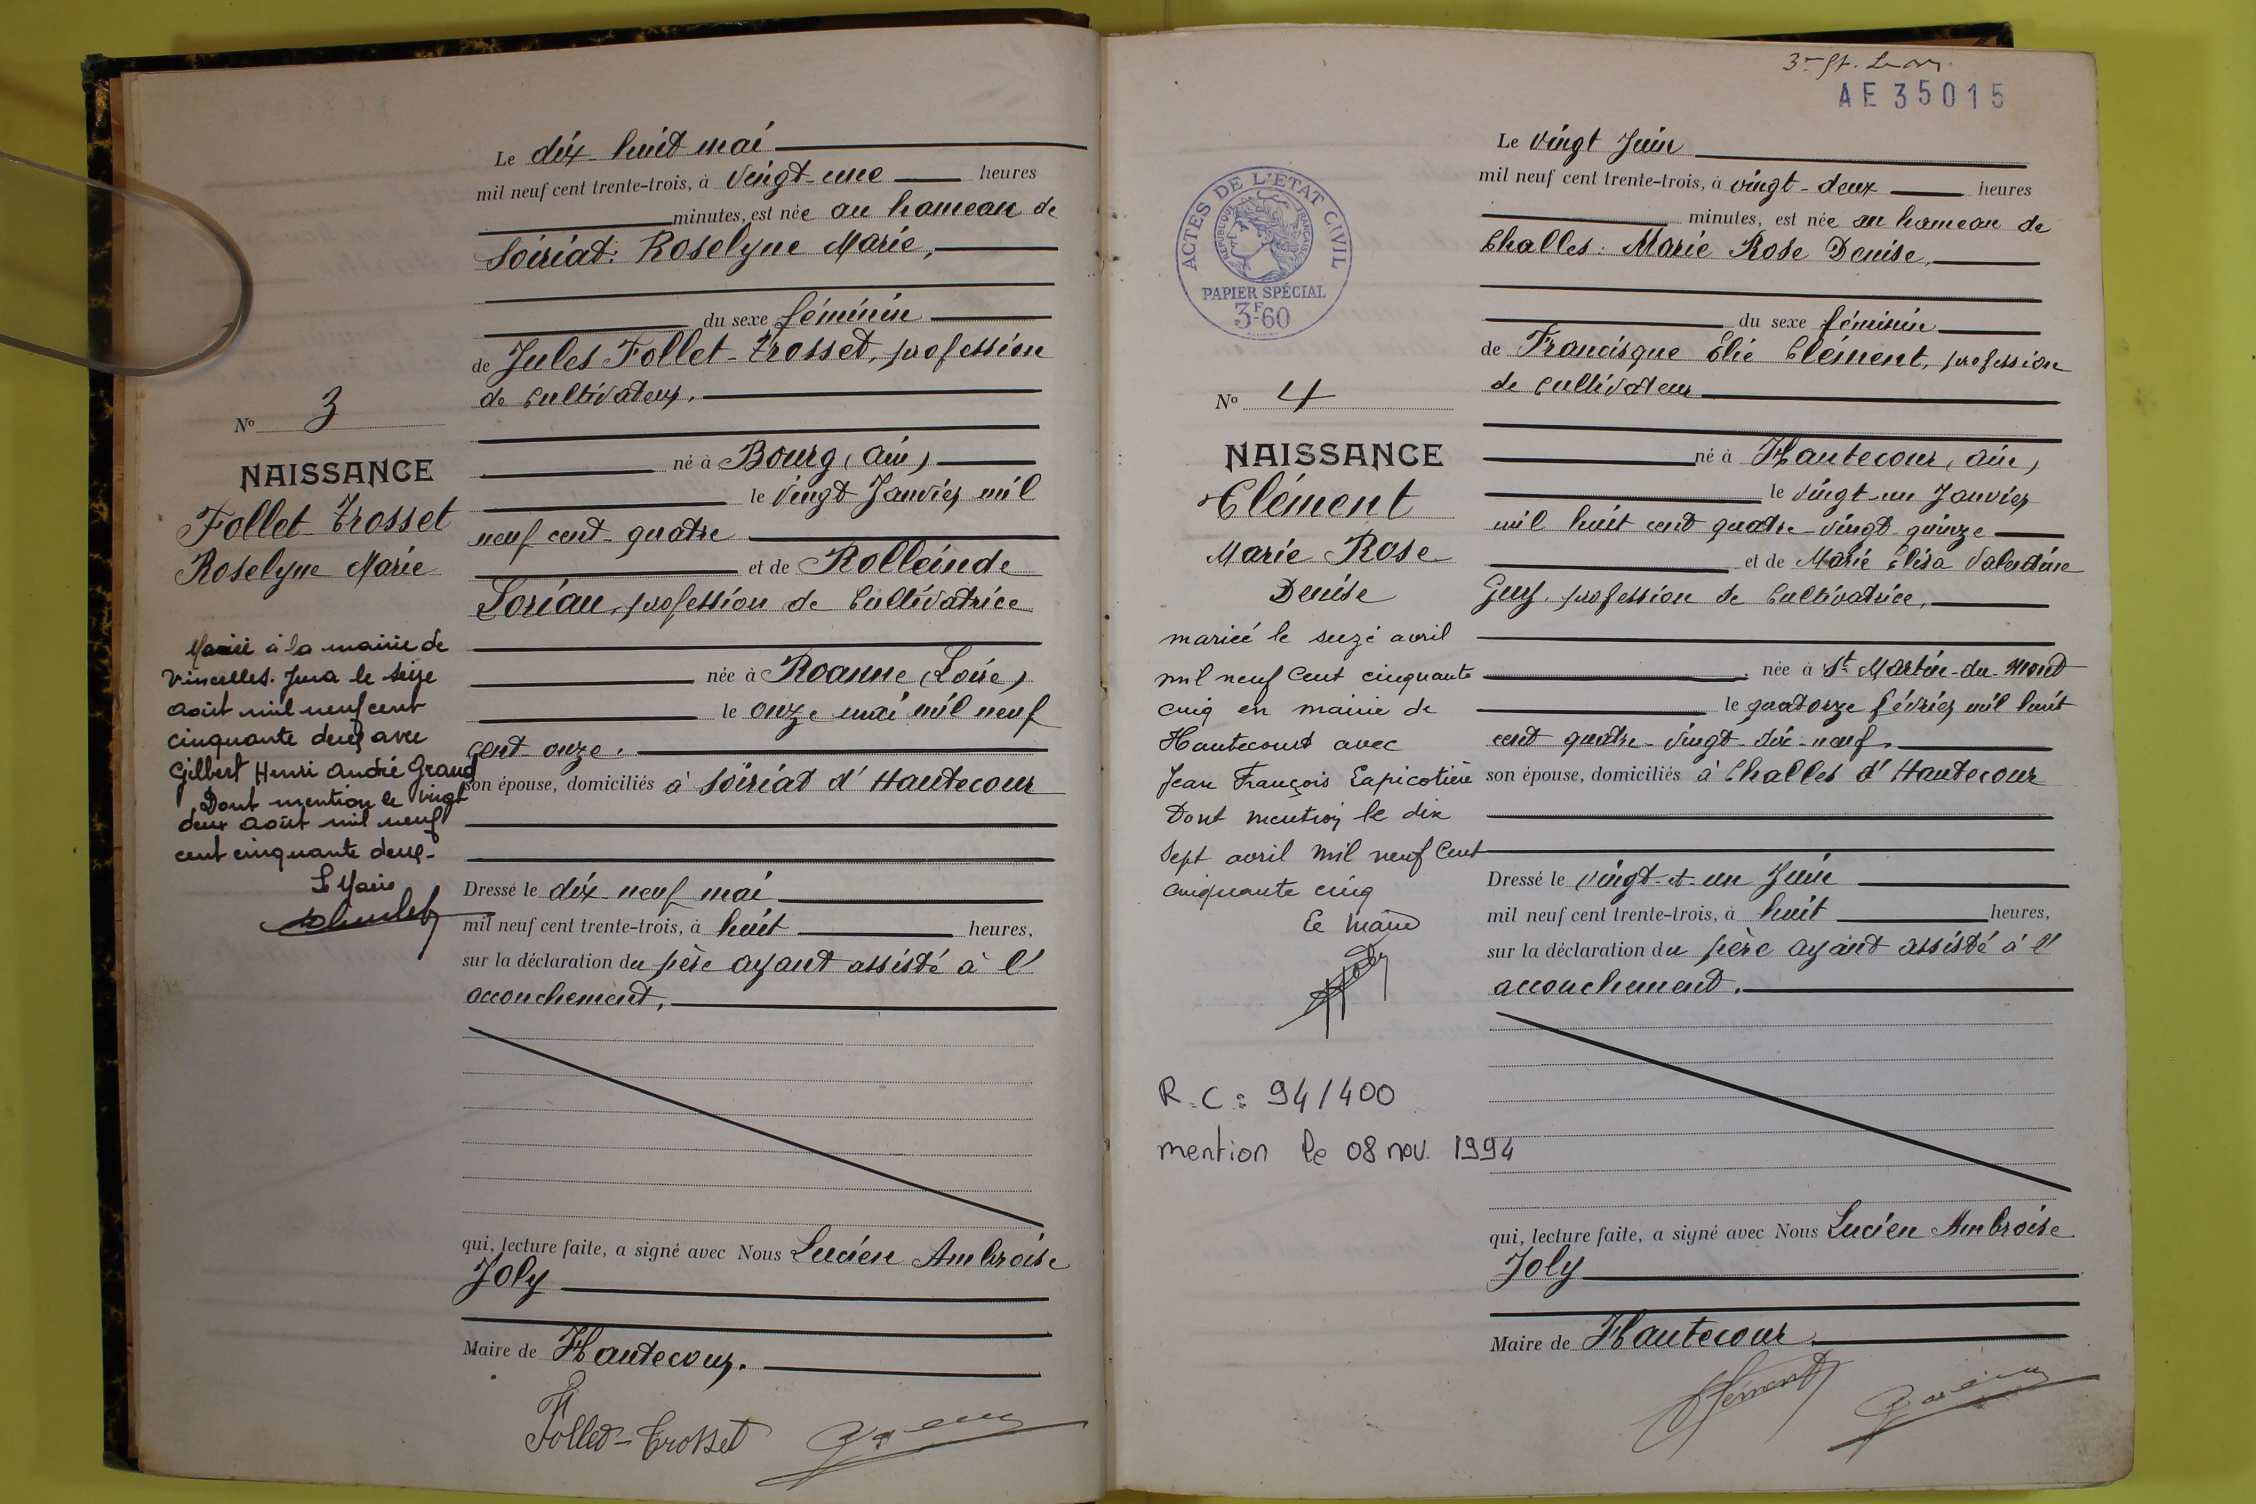 Le dix-huit mai
mil neuf cent trente-trois, à vingt-une heures
minutes, est née au hameau de
Soiriat: Roselyne Marie,
du sexe féminin
de Jules Follet-Trosset, profession
de cultivateur,
Nº 3
né à Bourg (Ain)
NAISSANCE
le vingt Janvier mil
Follet-Trosset
neuf cent-quatre
Roselyne Marie
et de Rolleinde
Loriau, profession de cultivatrice
Mariée à la mairie de
Vincelles. Jura le seize
août mil neuf cent
cinquante deux avec
Gilbert Henri André Grand
Dont mention le vingt
deux août mil neuf
cent cinquante deux-
Le Maire
née à Roanne (Loire)
le onze mai mil neuf
cent onze,
son épouse, domiciliés à Soiriat d'Hautecour
Dressé le dix-neuf mai
mil neuf cent trente-trois, à huit heures,
sur la déclaration du père ayant assisté à l'
accouchement,
qui, lecture faite, a signé avec Nous Lucien Ambroise
Joly
Maire de Hautecour.
Follet-Trosset
AE 35015
ACTES DE L'ETAT CIVIL
REPUBLIQUE FRANÇAISE
PAPIER SPÉCIAL
3F60
Le vingt Juin
mil neuf cent trente-trois, à vingt-deux heures
minutes, est née au hameau de
Challes: Marie Rose Denise,
du sexe féminin
de Francisque Elie Clément, profession
de cultivateur
Nº 4
né à Hautecour (Ain)
NAISSANCE
le vingt-un Janvier
Clément
mil huit cent quatre-vingt-quinze
Marie Rose
et de Marie Elisa Valentine
Denise
profession de cultivatrice,
mariée le seize avril
mil neuf cent cinquante
cinq en mairie de
Hautecourt avec
Jean François Lapicotière
Dont mention le dix
sept avril mil neuf cent
cinquante cinq
Le maire
née à St Martin-du-Mont
le quatorze février mil huit
cent quatre-vingt-dix-neuf,
son épouse, domiciliés à Challes d'Hautecour
Dressé le vingt-et-un Juin
mil neuf cent trente-trois, à huit heures,
sur la déclaration du père ayant assisté à l'
accouchement.
R.C: 94/400
mention le 08 nov. 1994
qui, lecture faite, a signé avec Nous Lucien Ambroise
Joly
Maire de Hautecour
Clément